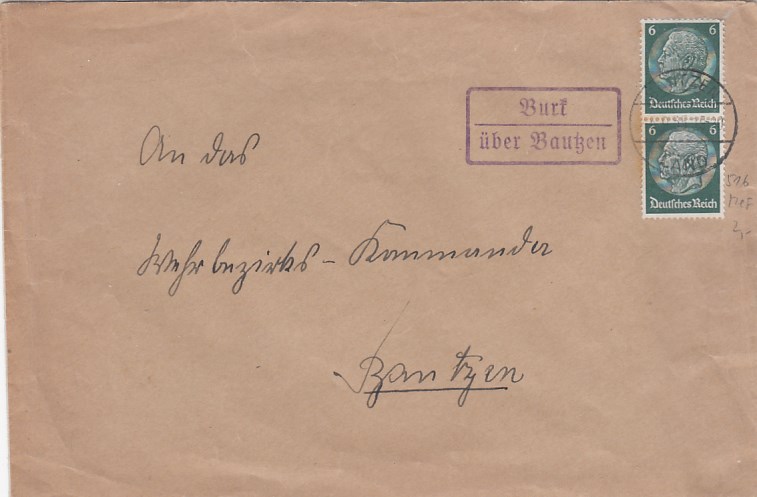 6 6
Deutsches Reich
6 6
Deutsches Reich
LAND
Burk
über Bautzen
516
2,-
An das
Wehrbezirks-Kommando
Bautzen